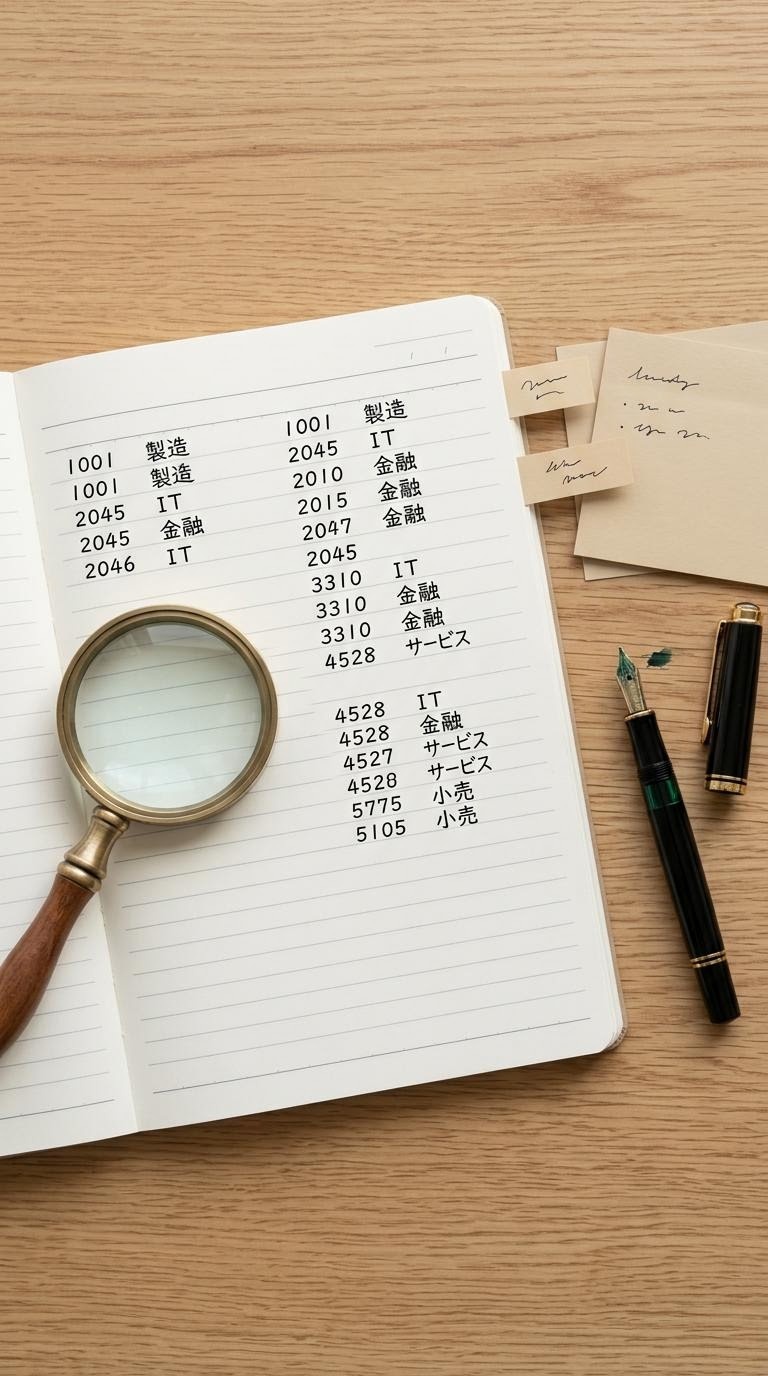 1001 製造
1001 製造
2045 IT
2045 金融
2046 IT
1001 製造
2045 IT
2010 金融
2015 金融
2047 金融
2045
3310 IT
3310 金融
3310 金融
4528 サービス
4528 IT
4528 金融
4527 サービス
4528 サービス
5775 小売
5105 小売